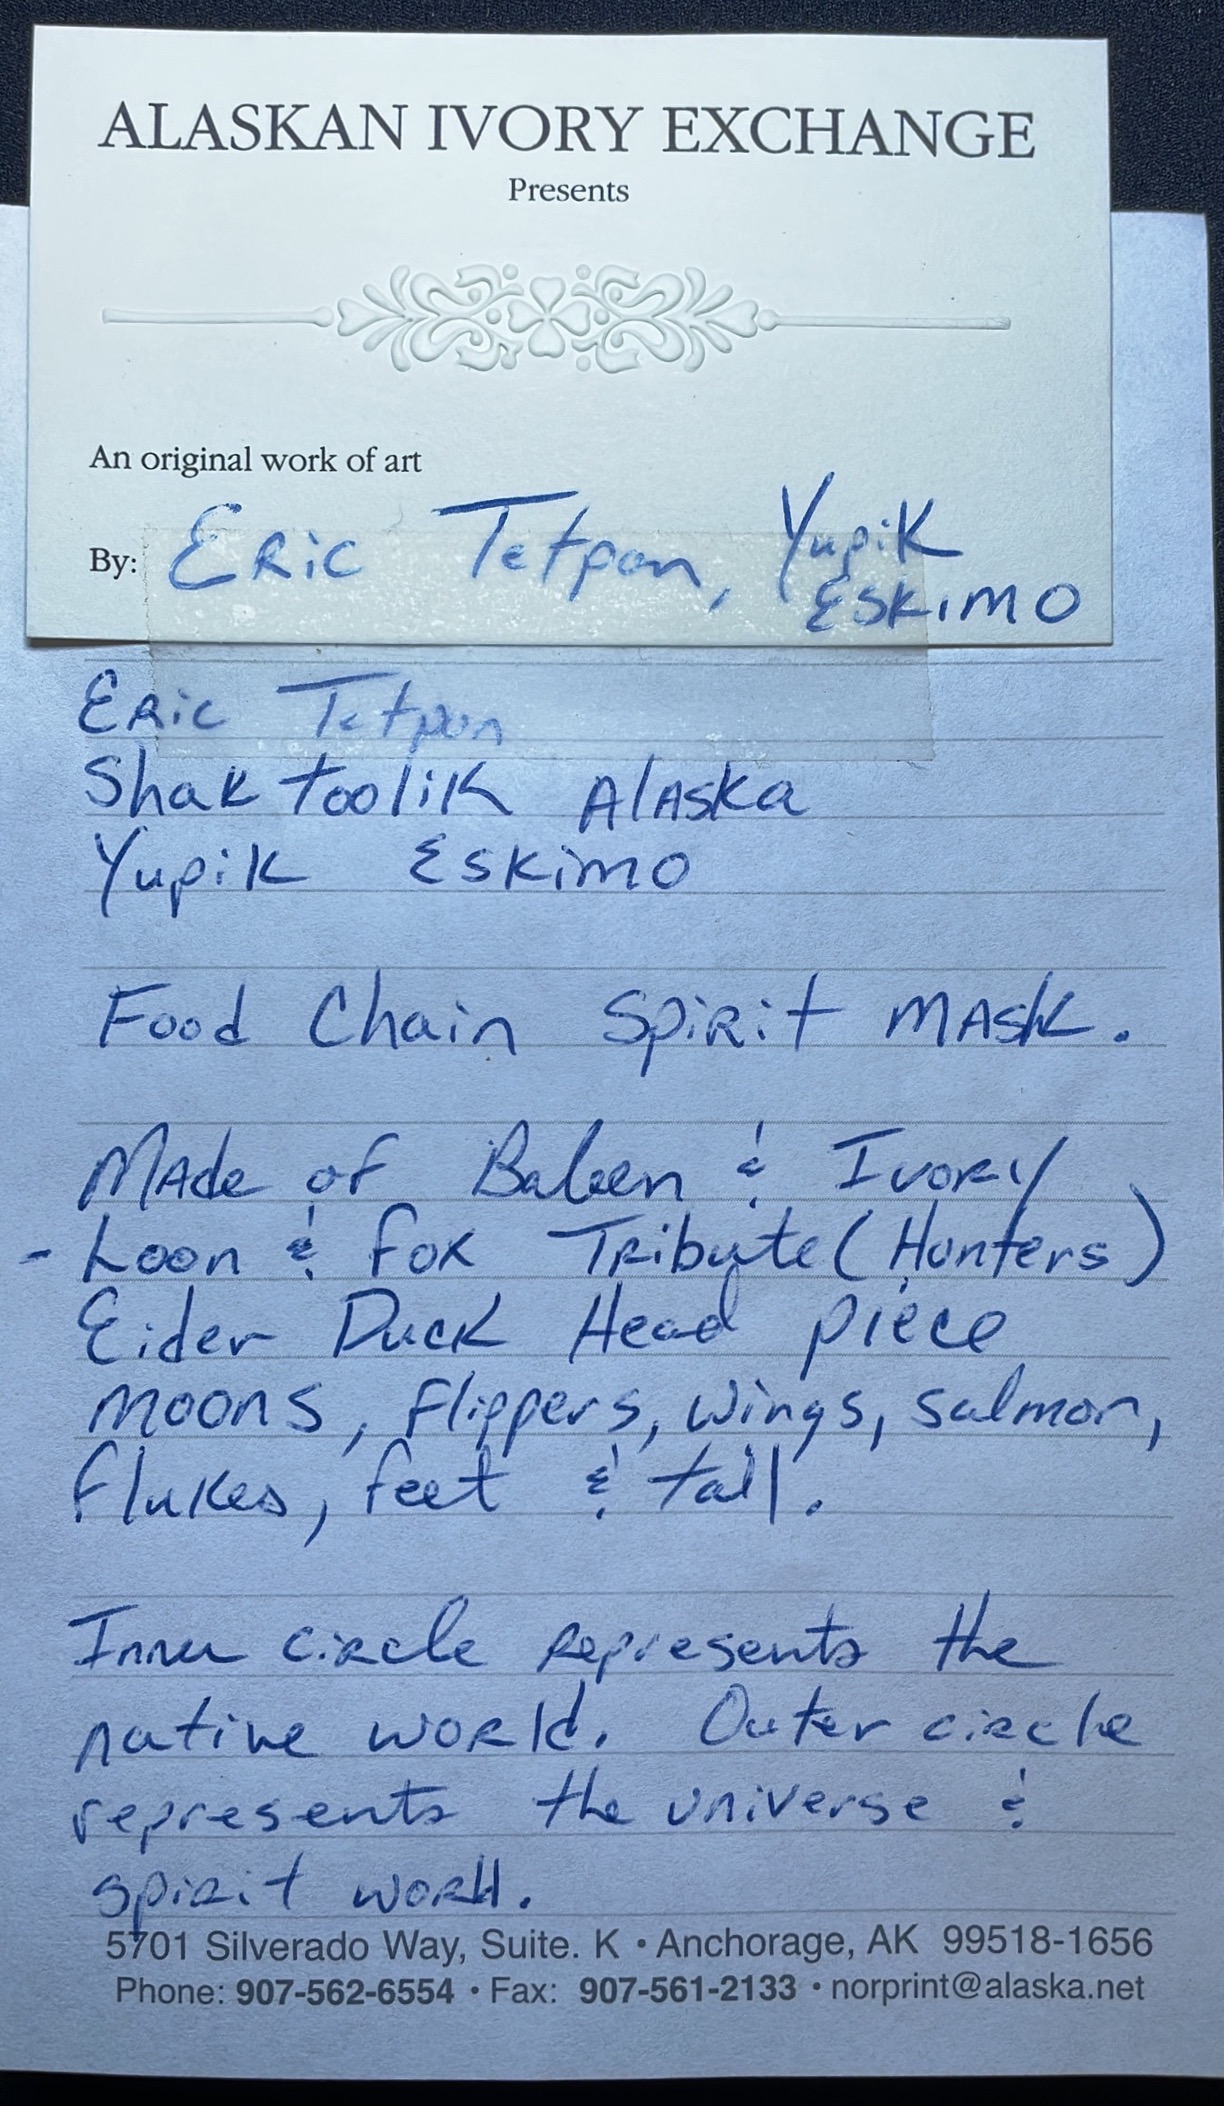 ALASKAN IVORY EXCHANGE
Presents
An original work of art
By: Eric Tetpon, Yupik
Eskimo
Eric Tetpon
Shaktoolik Alaska
Yupik Eskimo
Food Chain Spirit Mask.
Made of Baleen & Ivory
- Loon & Fox Tribute (Hunters)
Eider Duck Head piece
moons, flippers, wings, salmon,
flukes, feet & tail.
Inner circle represents the
native world. Outer circle
represents the universe &
spirit world.
5701 Silverado Way, Suite. K • Anchorage, AK 99518-1656
Phone: 907-562-6554 • Fax: 907-561-2133 • norprint@alaska.net